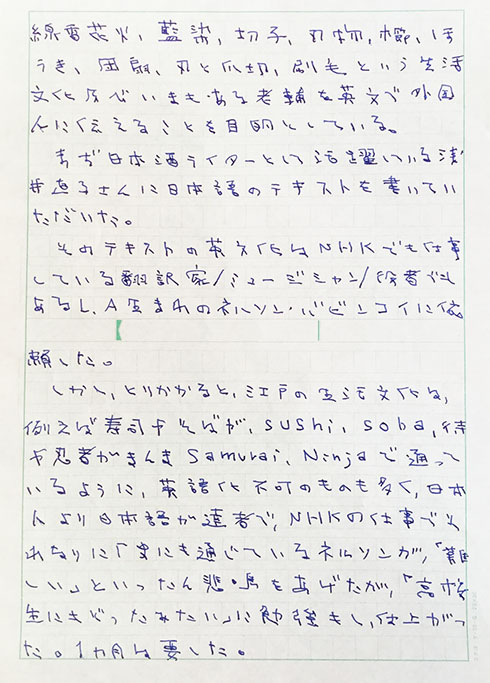 線香花火、藍染、切子、刃物、櫛、ほ
うき、団扇、刃と爪切、刷毛という生活
文化 いまもある老舗を英文で外国
人に伝えることを目的としている。
まず日本酒ライターとして活躍している浅
井直子さんに日本語のテキストを書いてい
ただいた。
そのテキストの英文化はNHKでも仕事
している翻訳家/ミュージシャン/役者でも
あるL.A生まれのネルソン・バビンコイに依
頼した。
しかし、とりかかると、江戸の生活文化は、
例えば寿司やそばが、sushi、soba、侍
や忍者がまんまSamurai、Ninjaで通って
いるように、英語化不可のものも多く、日本
人より日本語が達者で、NHKの仕事でそ
れなりに 通じているネルソンが、「難
しい」といったん悲鳴をあげたが、「高校
生にもどったみたい」に勉強もし、仕上がっ
た。1カ月は要した。